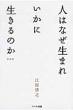 人はなぜ生まれ
いかに
生きるのか
江原啓之